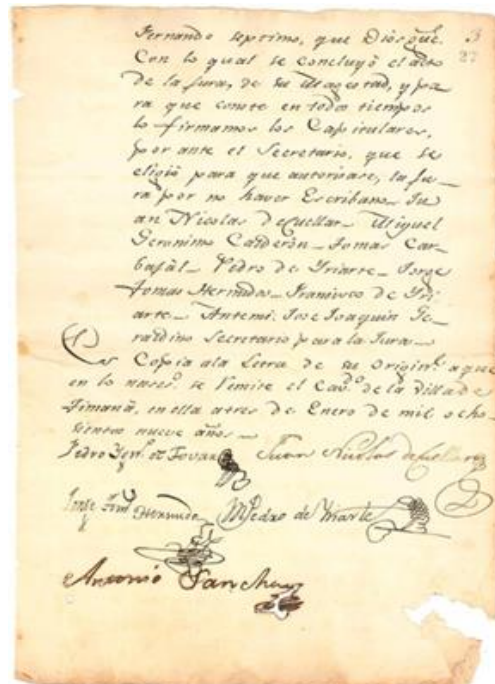 3
27
Fernando septimo, que Dios gũe.
Con lo qual se concluyó el acto
de la Jura, de su Magestad, y pa
ra que conste en todos tiempos
lo firmamos los Capitulares,
por ante el Secretario, que se
eligió para que autorisase, la Ju_
ra por no haver Escribano_ Ju
an Nicolas de Cuellar_ Miguel
Geronimo Calderón_ Tomas Car_
bajál_ Pedro de Yriarte_ Jorge
Tomas Hermida_ Francisco de Yri
arte_ Antemi: Jose Joaquin
Secretario para la Jura_
Es Copia ala Letra de su Origin.l aque
en lo neces.o se Remite el Cav.do de la Villa de
Timaná, en ella atres de Enero de mil ocho_
sientos nueve años_
Pedro Ygn.o de Tovar
Juan Nicolas de Cuellar
Jorge Tom.s Hermida
Pedro de Yriarte
Antonio Sanchez